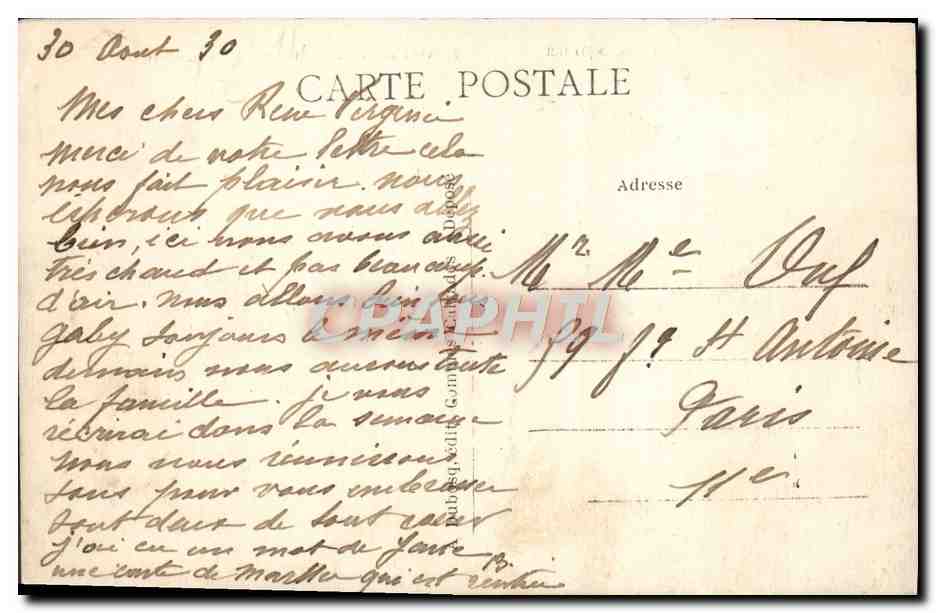 30 Aout 30
CARTE POSTALE
Mes chers Rene Virginie
merci de votre lettre cela
nous fait plaisir. nous
esperons que vous allez
bien, ici nous avons aussi
très chaud et pas beaucoup
d'air. Nous allons bien
gaby toujours le même
demain nous aurons toute
la famille. je vous
récrirai dans la semaine
nous nous réunissons
tous pour vous embrasser
tout deux de tout cœur
j'ai eu un mot de
une carte de Martha qui est rentrée
Adresse
Mr Me
59 fg St Antoine
Paris
11e
Dubosq, édit. Commes Calvados Déposé
CPAPHIL